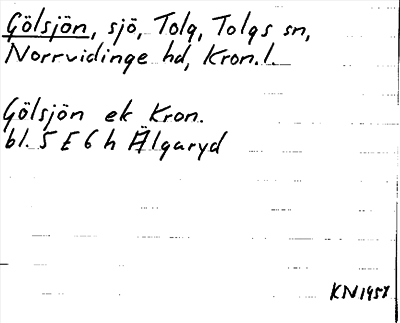 Gölsjön, sjö, Tolg, Tolgs sn,
Norrvidinge hd, Kron.l.
Gölsjön ek Kron.
bl. 5 E 6 h Älgaryd
KN 1958